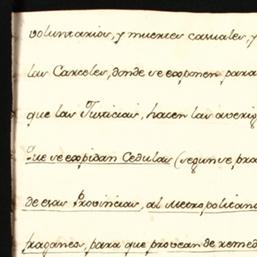 voluntarios, y muertes casuales, y
las Carceles, donde se exponen para
que las Justicias, hacen las averig
Que se expidan Cedulas (segun se pra
de esas Provincias, al Metropolitano
fraganeos, para que provean de remed